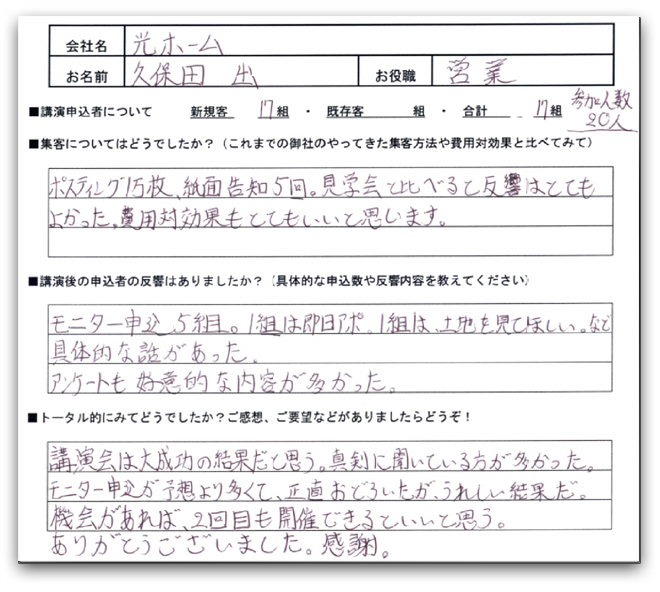 会社名 光ホーム
お名前 久保田 出 お役職 営業
■講演申込者について 新規客 17組 ・ 既存客 組 ・ 合計 17組 参加人数 20人
■集客についてはどうでしたか？（これまでの御社のやってきた集客方法や費用対効果と比べてみて）
ポスティング1万枚、紙面告知5回。見学会と比べると反響はとても
よかった。費用対効果もとてもいいと思います。
■講演後の申込者の反響はありましたか？（具体的な申込数や反響内容を教えてください）
モニター申込 5組。1組は即日アポ。1組は、土地を見てほしい。など
具体的な話があった。
アンケートも 好意的な内容が多かった。
■トータル的にみてどうでしたか？ご感想、ご要望などがありましたらどうぞ！
講演会は大成功の結果だと思う。真剣に聞いている方が多かった。
モニター申込が予想より多くて、正直おどろいたが、うれしい結果だ。
機会があれば、2回目も開催できるといいと思う。
ありがとうございました。感謝。